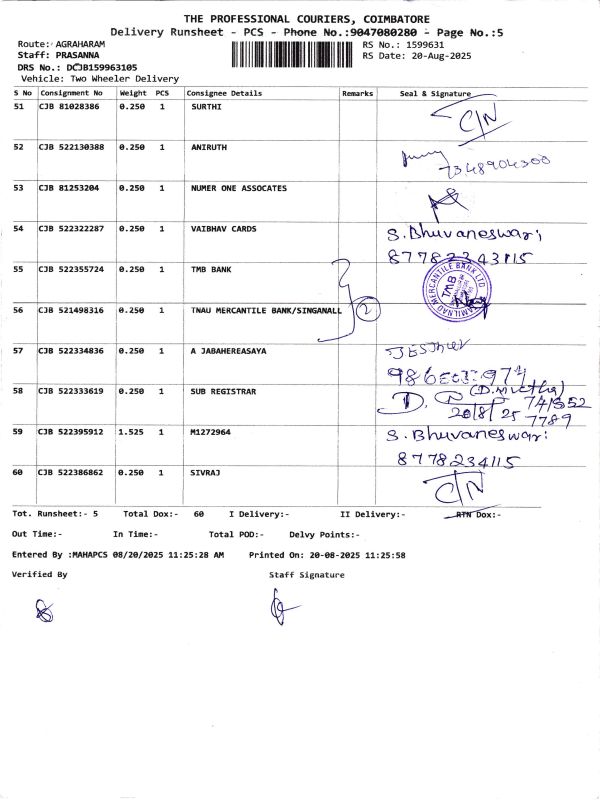 THE PROFESSIONAL COURIERS, COIMBATORE
Delivery Runsheet - PCS - Phone No.:9047080280 - Page No.:5
Route: AGRAHARAM RS No.: 1599631
Staff: PRASANNA RS Date: 20-Aug-2025
DRS No.: DCJB159963105
Vehicle: Two Wheeler Delivery
S No Consignment No Weight PCS Consignee Details Remarks Seal & Signature
51 CJB 81028386 0.250 1 SURTHI C/N
52 CJB 522130388 0.250 1 ANIRUTH
7348904300
53 CJB 81253204 0.250 1 NUMER ONE ASSOCATES
54 CJB 522322287 0.250 1 VAIBHAV CARDS S. Bhuvaneswari
55 CJB 522355724 0.250 1 TMB BANK
TAMILNAD MERCANTILE BANK LTD
TMB
56 CJB 521498316 0.250 1 TNAU MERCANTILE BANK/SINGANALL 2
57 CJB 522334836 0.250 1 A JABAHEREASAYA
58 CJB 522333619 0.250 1 SUB REGISTRAR
20/8/25
7789
59 CJB 522395912 1.525 1 M1272964 S. Bhuvaneswari
8778234115
60 CJB 522386862 0.250 1 SIVRAJ C/N
Tot. Runsheet:- 5 Total Dox:- 60 I Delivery:- II Delivery:- RTN Dox:-
Out Time:- In Time:- Total POD:- Delvy Points:-
Entered By :MAHAPCS 08/20/2025 11:25:28 AM Printed On: 20-08-2025 11:25:58
Verified By Staff Signature